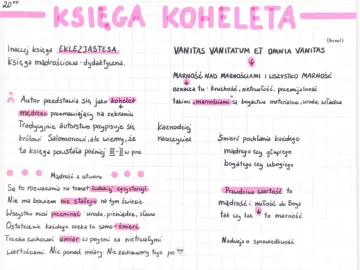 20⁰⁰
KSIĘGA KOHELETA
Inaczej księga EKLEZJASTESA.
księga mądrościowo-dydaktyczna.
Autor przedstawia się jako kohelet
mędrzec przemawiający na zebraniu
Tradycyjnie autorstwo przypisuje się
królowi Salomonowi, ale wiemy, że
ta księga powstała później III-II w pne
Kaznodzieja
Nauczyciel
Mądrość z utworu
Są to rozważania na temat ludzkiej egzystencji.
Nie ma bowiem nic stałego na tym świecie
Wszystko musi przeminąć uroda, pieniądze, sława
Ostatecznie każdego czeka to samo - śmierć
Trzeba zachować umiar w pogoni za nietrwałymi
wartościami. Nie ponad miarę. Nie zachowujmy typu po
VANITAS VANITATUM ET OMNIA VANITAS
MARNOŚĆ NAD MARNOŚCIAMI I WSZYSTKO MARNOŚĆ
oznacza to: kruchość, nietrwałość, przemijalność
takimi "marnościami" są bogactwa materialne, uroda, władza
Śmierć pochłania każdego
mądrego czy głupiego
bogatego czy ubogiego
Prawdziwa wartość to
mądrość i miłość do Boga
tak czy tak to marność
Nadzieja o sprawiedliwość